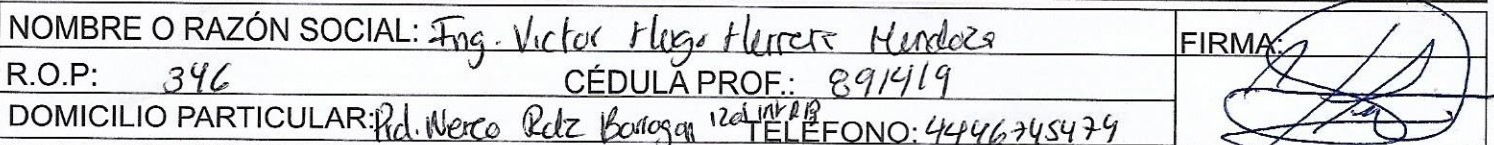 NOMBRE O RAZÓN SOCIAL: Ing. Victor Hugo Herrera Mendoza FIRMA:
R.O.P: 346 CÉDULA PROF.: 891419
DOMICILIO PARTICULAR: Barragan TELÉFONO: 4446745479